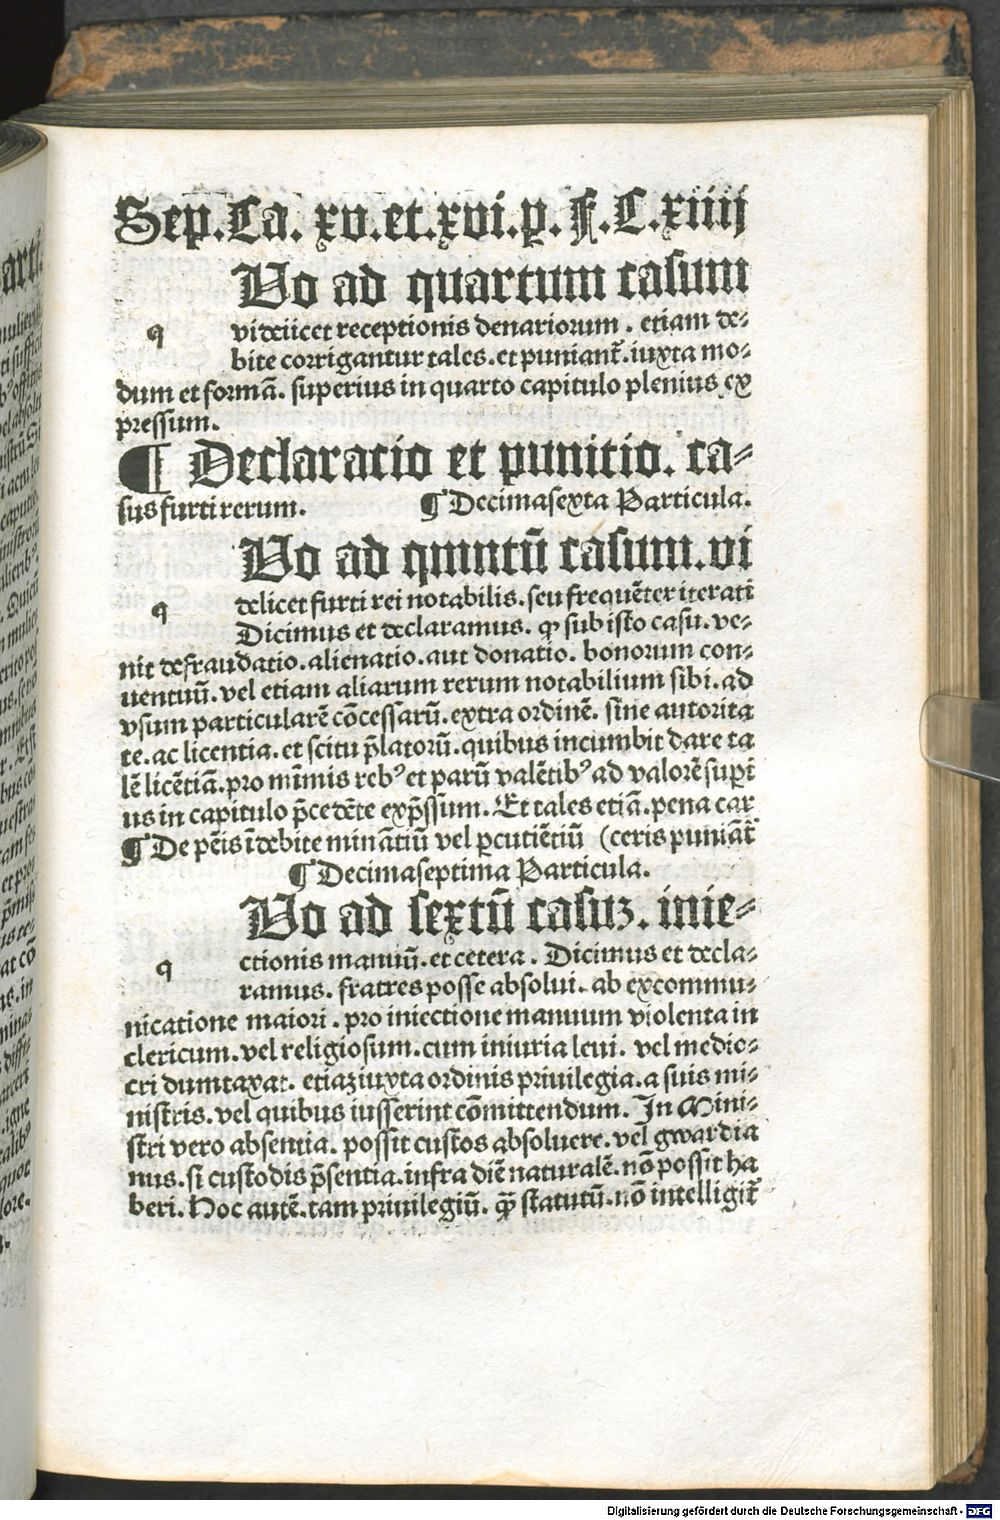 Sep.Ca. xv.et.xvi.p. F.C.xiiij
Uo ad quartum casum
q videlicet receptionis denariorum . etiam de⸗
bite corrigantur tales. et puniant̃. iuxta mo⸗
dum et formã. superius in quarto capitulo plenius ex
pressum.
¶ Declaratio et punitio. ca⸗
sus furti rerum. ¶ Decimasexta Particula.
Uo ad quintũ casum. vi
q delicet furti rei notabilis. seu frequẽter iterati
Dicimus et declaramus. ꝙ sub isto casu. ve⸗
nit defraudatio. alienatio. aut donatio. bonorum con⸗
uentuũ. vel etiam aliarum rerum notabilium sibi. ad
vsum particularẽ cõcessarũ. extra ordinẽ. sine autorita
te. ac licentia. et scitu p̃latorũ. quibus incumbit dare ta
lẽ licẽtiã. pro mĩmis rebꝰ et parũ valẽtibꝰ ad valorẽ superi
us in capitulo p̃cedẽte exp̃ssum. Et tales etiã. pena car
¶ De pẽis ĩdebite minãtiũ vel ꝑcutiẽtiũ (ceris puniãt̃
¶ Decimaseptima Particula.
Uo ad sextũ casuꝫ. inie⸗
q ctionis manuũ. et cetera . Dicimus et decla⸗
ramus. fratres posse absolui. ab excommu⸗
nicatione maiori . pro iniectione manuum violenta in
clericum. vel religiosum. cum iniuria leui. vel medio⸗
cri dumtaxat. etiaꝫ iuxta ordinis priuilegia. a suis mi⸗
nistris. vel quibus iusserint cõmittendum. In Mini⸗
stri vero absentia. possit custos absoluere. vel gwardia
nus. si custodis p̃sentia. infra diẽ naturalẽ. nõ possit ha
beri. Hoc autẽ. tam priuilegiũ. ꝙ̃ statutũ. nõ intelligit̃
Digitalisierung gefördert durch die Deutsche Forschungsgemeinschaft - DFG